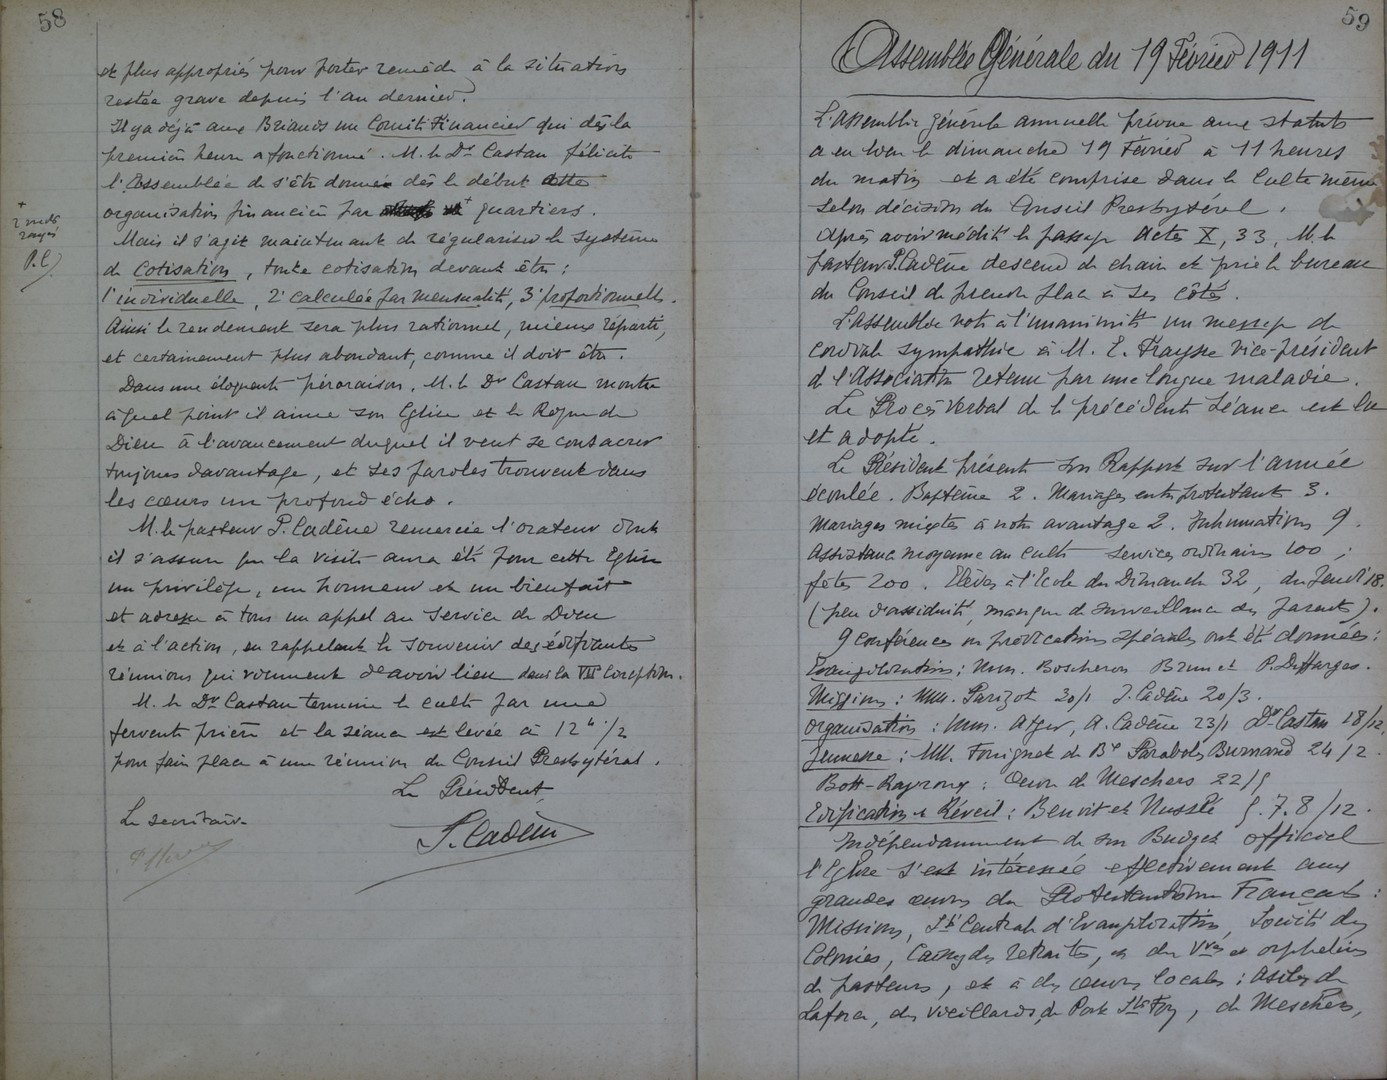 58
et plus appropriés pour porter remède à la situation
restée grave depuis l'an dernier.
Il y a déjà aux Briands un Comité Financier qui dès la
première heure a fonctionné. M. le Dr Castan félicite
l'Assemblée de s'être donnée dès le début cette
organisation financière par quartiers.
+
2 mots
rayés
P.C.
Mais il s'agit maintenant de régulariser le système
de Cotisation, toute cotisation devant être :
1° individuelle, 2° calculée par mensualité, 3° proportionnelle.
Ainsi le rendement sera plus rationnel, mieux réparti,
et certainement plus abondant, comme il doit être.
Dans une éloquente péroraison, M. le Dr Castan montre
à quel point il aime son Eglise et le Règne de
Dieu à l'avancement duquel il veut se consacrer
toujours davantage, et ses paroles trouvent dans
les cœurs un profond écho.
M. le pasteur P. Cadène remercie l'orateur dont
il s'assure que la visite aura été pour cette Eglise
un privilège, un honneur et un bienfait
et adresse à tous un appel au service de Dieu
et à l'action, en rappelant le souvenir des édifiantes
réunions qui viennent d'avoir lieu dans la VIIIe Conscription.
M. le Dr Castan termine le culte par une
fervente prière et la séance est levée à 12 h 1/2
pour faire place à une réunion du Conseil Presbytéral.
Le Président
Le secrétaire
P. Cadène
59
Assemblée Générale du 19 Février 1911
L'assemblée générale annuelle prévue aux statuts
a eu lieu le dimanche 19 Février à 11 heures
du matin et a été comprise dans le Culte même
selon décision du Conseil Presbytéral.
Après avoir médité le passage Actes X, 33, M. le
pasteur P. Cadène descend de chaire et prie le bureau
du Conseil de prendre place à ses côtés.
L'Assemblée vote à l'unanimité un message de
cordiale sympathie à M. E. Fraysse vice-président
de l'Association retenu par une longue maladie.
Le Procès Verbal de la précédente séance est lu
et adopté.
Le Président présente son Rapport sur l'année
écoulée. Baptême 2. Mariages entre protestants 3.
Mariages mixtes à notre avantage 2. Inhumations 9.
Assistance moyenne au culte services ordinaires 100 ;
fêtes 200. Elèves à l'Ecole du Dimanche 32, du Jeudi 18.
(peu d'assiduité, manque de surveillance des parents).
9 conférences ou prédications spéciales ont été données :
Evangélisation : Mm. Boscheron Brunet P. Deffarges.
Missions : MM. Parizot 30/1 J. Cadène 20/3.
Organisation : Mm. Atger, A. Cadène 23/1 Dr Castan 18/12.
Jeunesse : MM. Fouignet de Bx Paraboles Burnand 24/2.
Bott-Rayroux : Œuvre de Meschers 22/5
Edification et Réveil : Benoit et Nusslé 5.7.8/12.
Indépendamment de son Budget officiel
l'Eglise s'est intéressée effectivement aux
grandes œuvres du Protestantisme Français :
Missions, Sté Centrale d'Evangélisation, Société des
Colonies, Caisse des retraites, et des Vves et orphelins
de pasteurs, et à des œuvres locales : Asiles de
Laforce, des vieillards de Port Ste Foy, de Meschers,